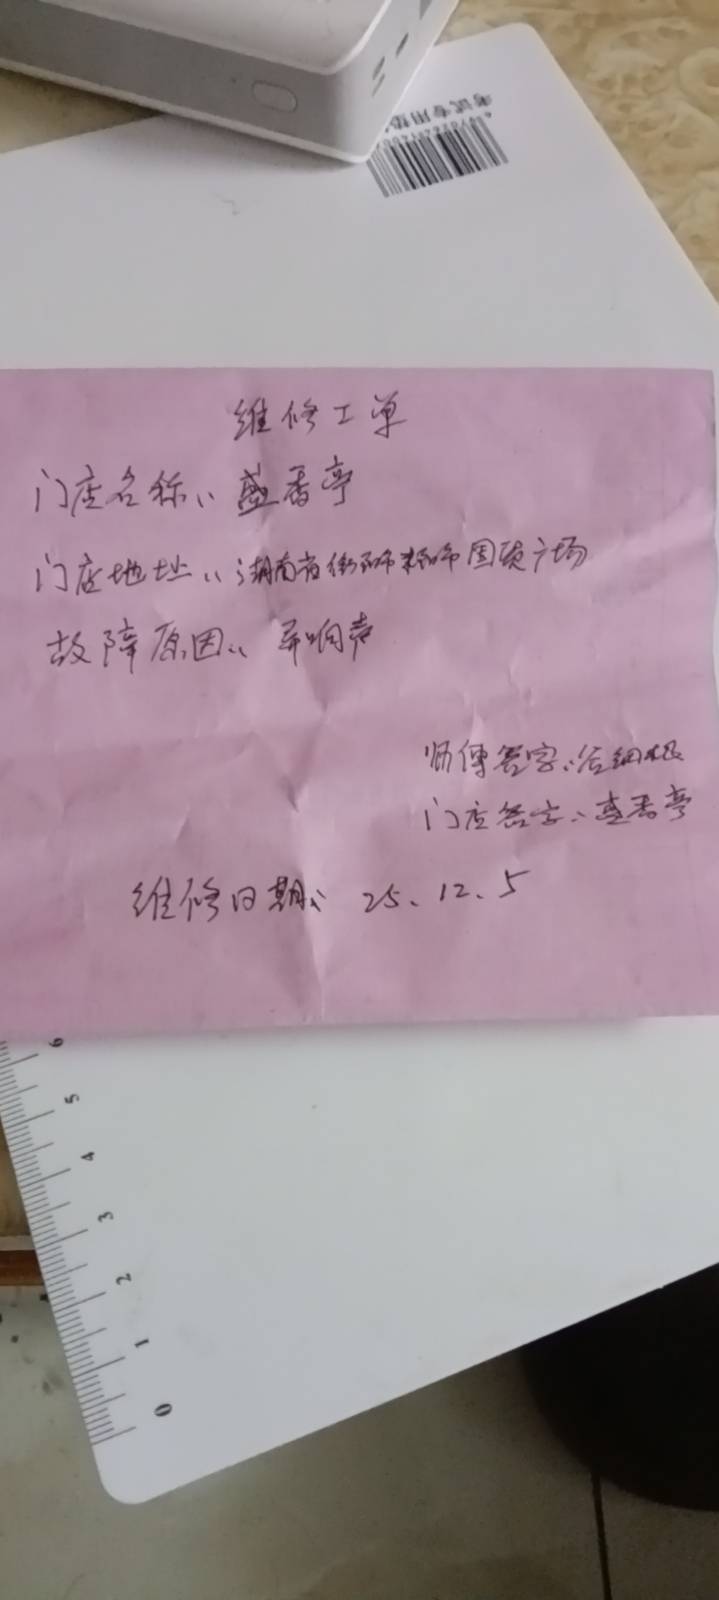 考试专用垫
维修工单
门店名称：盛香亭
门店地址：湖南省衡阳市耒阳市国贸广场
故障原因：异响声
师傅签字：
门店签字：盛香亭
维修日期：25.12.5
6
5
4
3
2
1
0